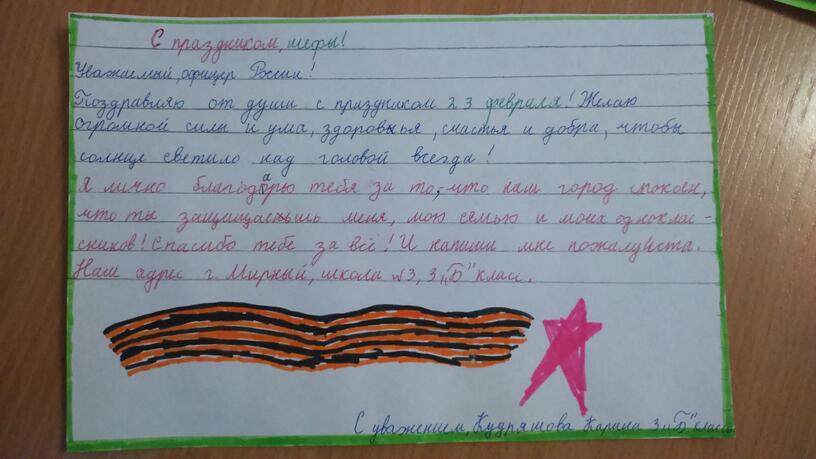 С праздником, шефы!
Уважаемый, офицер России!
Поздравляю от души с праздником 23 февраля! Желаю
огромной силы и ума, здоровья, счастья и добра, чтобы
солнце светило над головой всегда!
Я лично благодарю тебя за то, что наш город спокоен,
что ты защищаешь меня, мою семью и моих однокла-
сников! Спасибо тебе за всё! И напиши мне пожалуйста.
Наш адрес г. Мирный, школа №3, 3 „Б" класс.
С уважением, Кудряшова Карина 3 „Б" класс